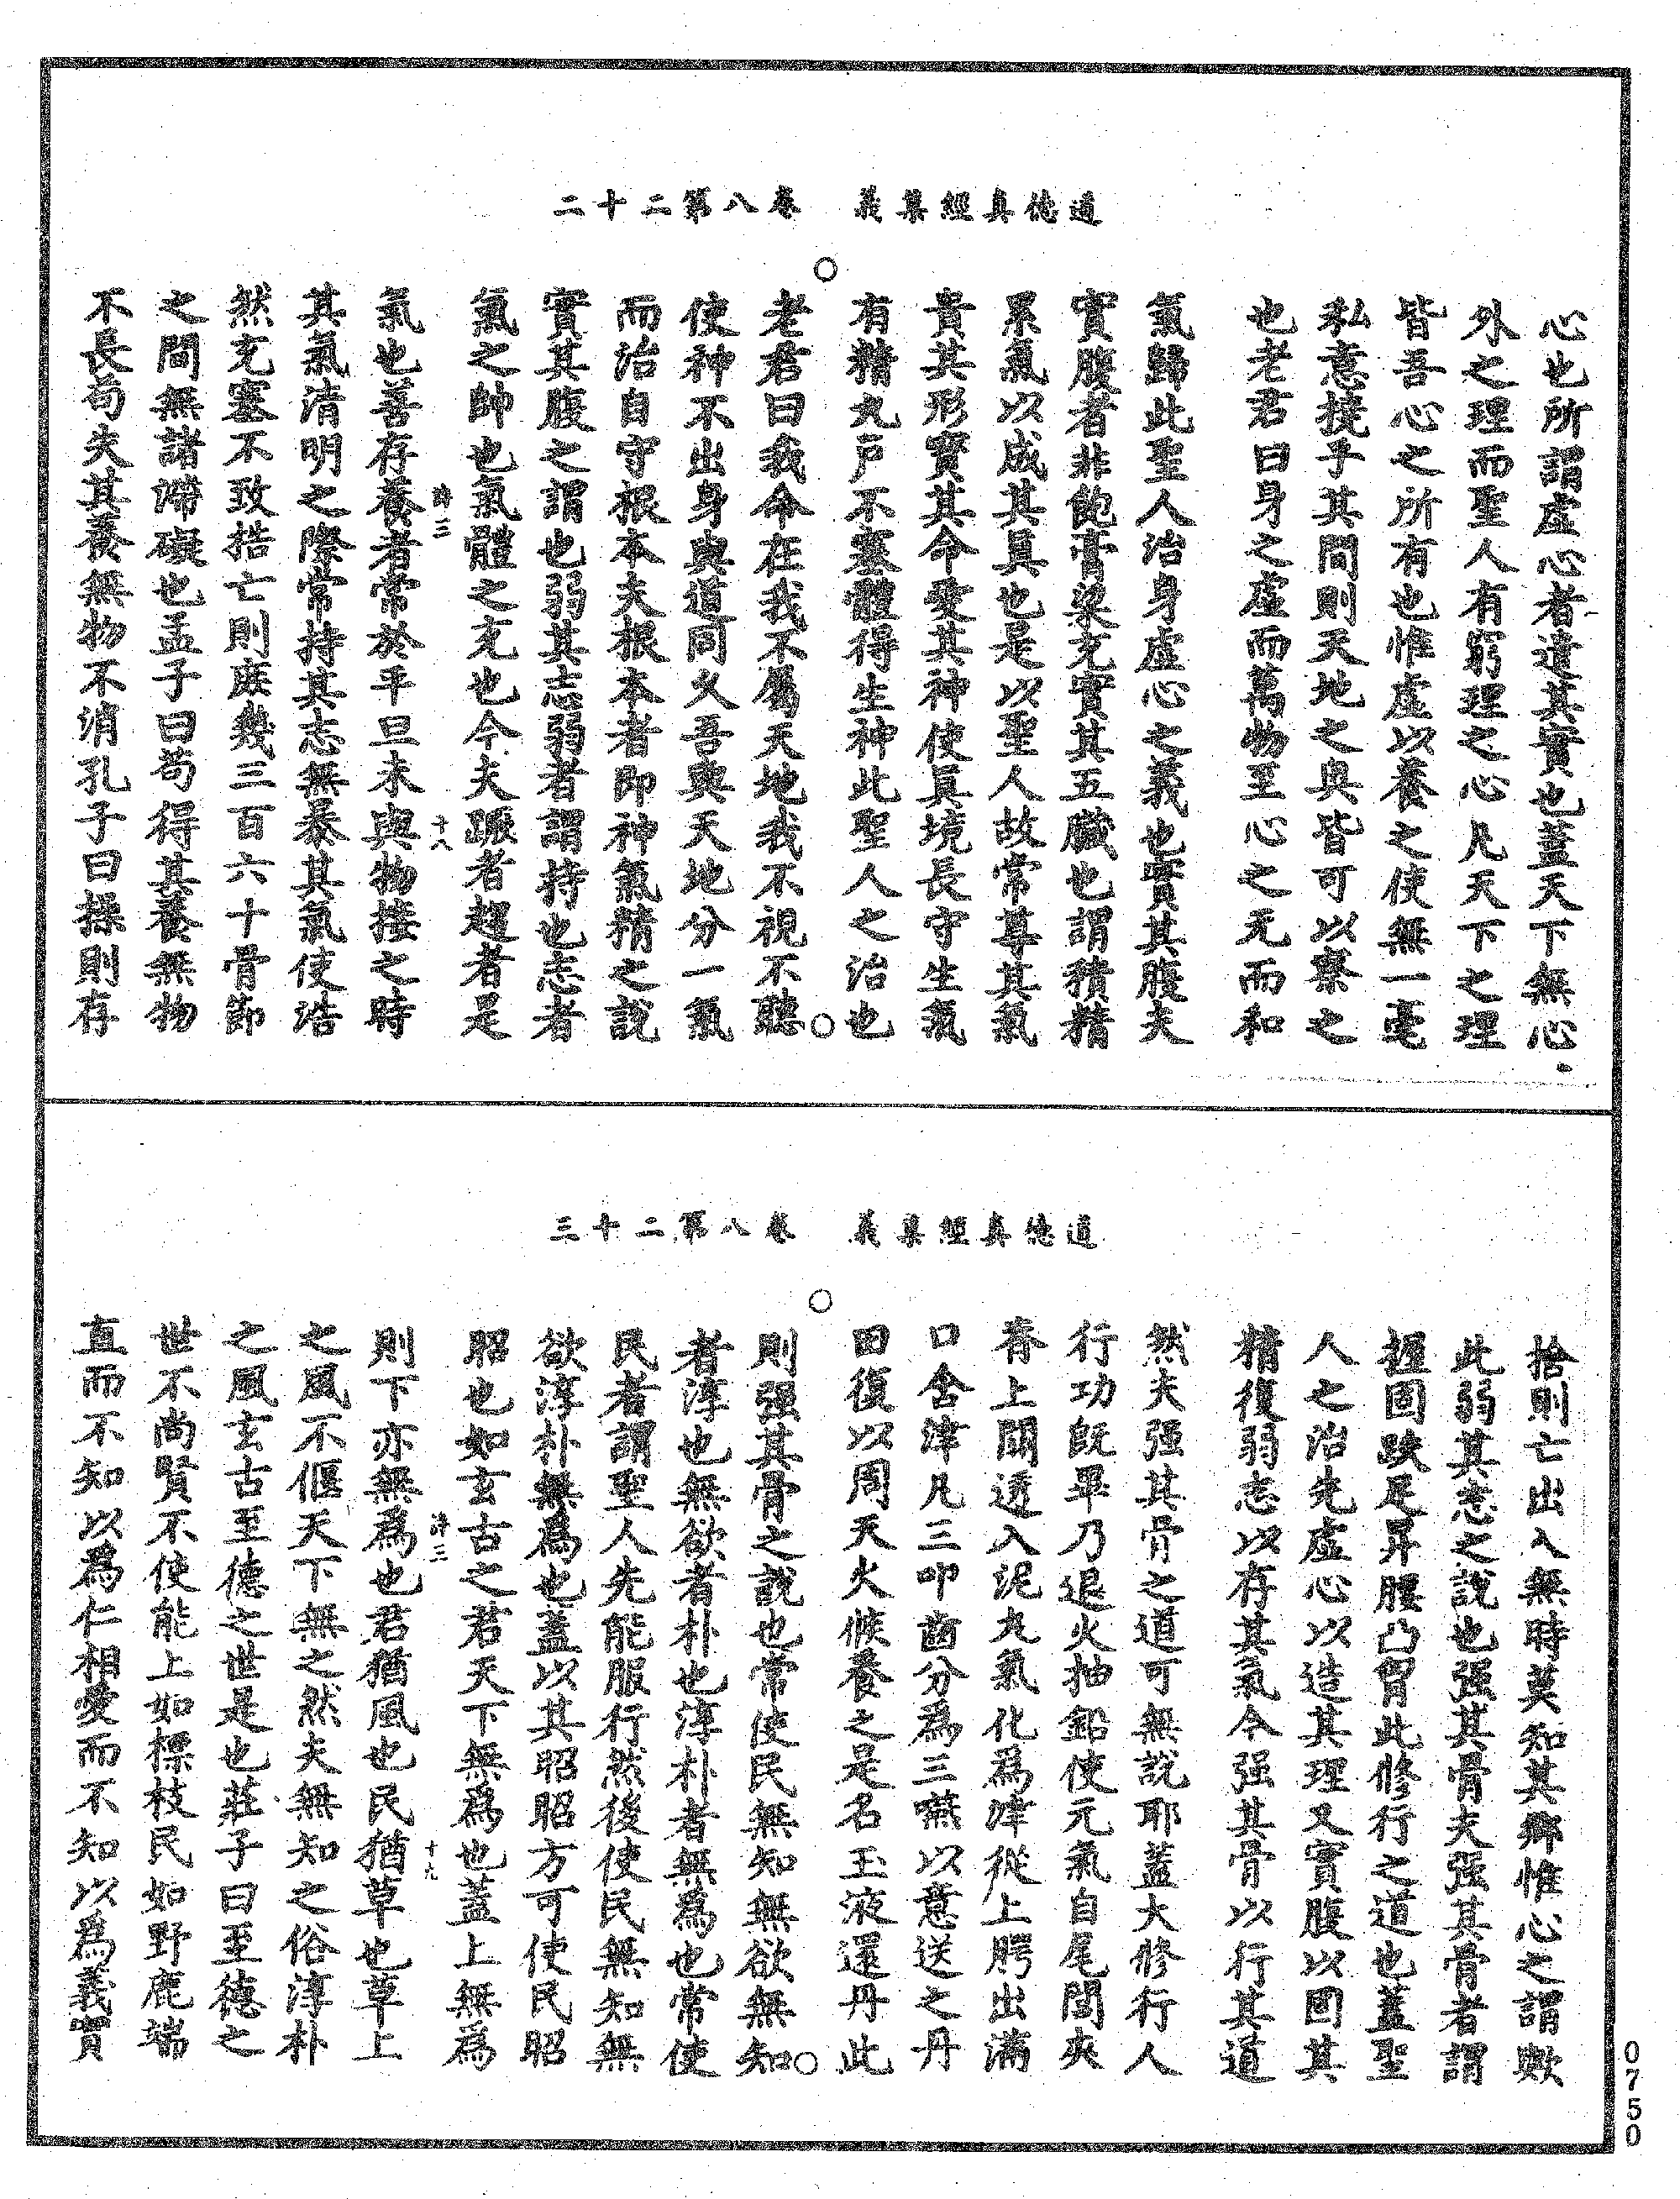 道德真經集義　卷八第二十二
心也所謂虛心者遣其實也蓋天下無心
外之理而聖人有窮理之心凡天下之理
皆吾心之所有也惟虛以養之使無一毫
私意撓乎其間則天地之奥皆可以察之
也老君曰身之虛而萬物至心之无而和
氣歸此聖人治身虛心之義也實其腹夫
實腹者非飽膏粱充實其五臟也謂積精
累氣以成其真也是以聖人故常尊其氣
貴其形寶其命愛其神使真境長守生氣
有精九戶不塞體得生神此聖人之治也
老君曰我命在我不屬天地我不視不聽
使神不出身與道同久吾與天地分一氣
而治自守根本夫根本者即神氣精之說
實其腹之謂也弱其志弱者謂持也志者
氣之帥也氣體之充也今夫蹶者趨者是
氣也善存養者常於平旦未與物接之時
詩三
十八
其氣清明之際常持其志無暴其氣使浩
然充塞不致梏亡則庶幾三百六十骨節
之間無諸滯礙也孟子曰苟得其養無物
不長苟失其養無物不消孔子曰操則存
道德真經集義　卷八第二十三
捨則亡出入無時莫知其鄉惟心之謂歟
此弱其志之說也强其骨夫强其骨者謂
握固趺足昇腰凸胷此修行之道也蓋聖
人之治先虛心以造其理又實腹以固其
精復弱志以存其氣今强其骨以行其道
然夫强其骨之道可無說耶蓋大修行人
行功既畢乃退火抽鉛使元氣自尾閭夾
脊上關透入泥丸氣化為津從上腭出滿
口含津凡三叩齒分為三嚥以意送之丹
田復以周天火候養之是名玉液還丹此
則强其骨之說也常使民無知無欲無知
者淳也無欲者朴也淳朴者無為也常使
民者謂聖人先能服行然後使民無知無
欲淳朴無為也蓋以其昭昭方可使民昭
昭也如玄古之君天下無為也蓋上無為
則下亦無為也君猶風也民猶草也草上
詩三
十九
之風不偃天下無之然夫無知之俗淳朴
之風玄古至德之世是也莊子曰至德之
世不尚賢不使能上如標枝民如野鹿端
直而不知以為仁相愛而不知以為義實
0750